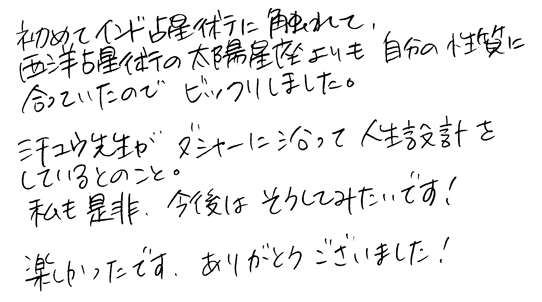 初めてインド占星術に触れて、
西洋占星術の太陽星座よりも 自分の性質に
合っていたので ビックリしました。
ミチユウ先生が ダシャーに沿って 人生設計を
しているとのこと。
私も是非、今後は そうしてみたいです!
楽しかったです、ありがとうございました!